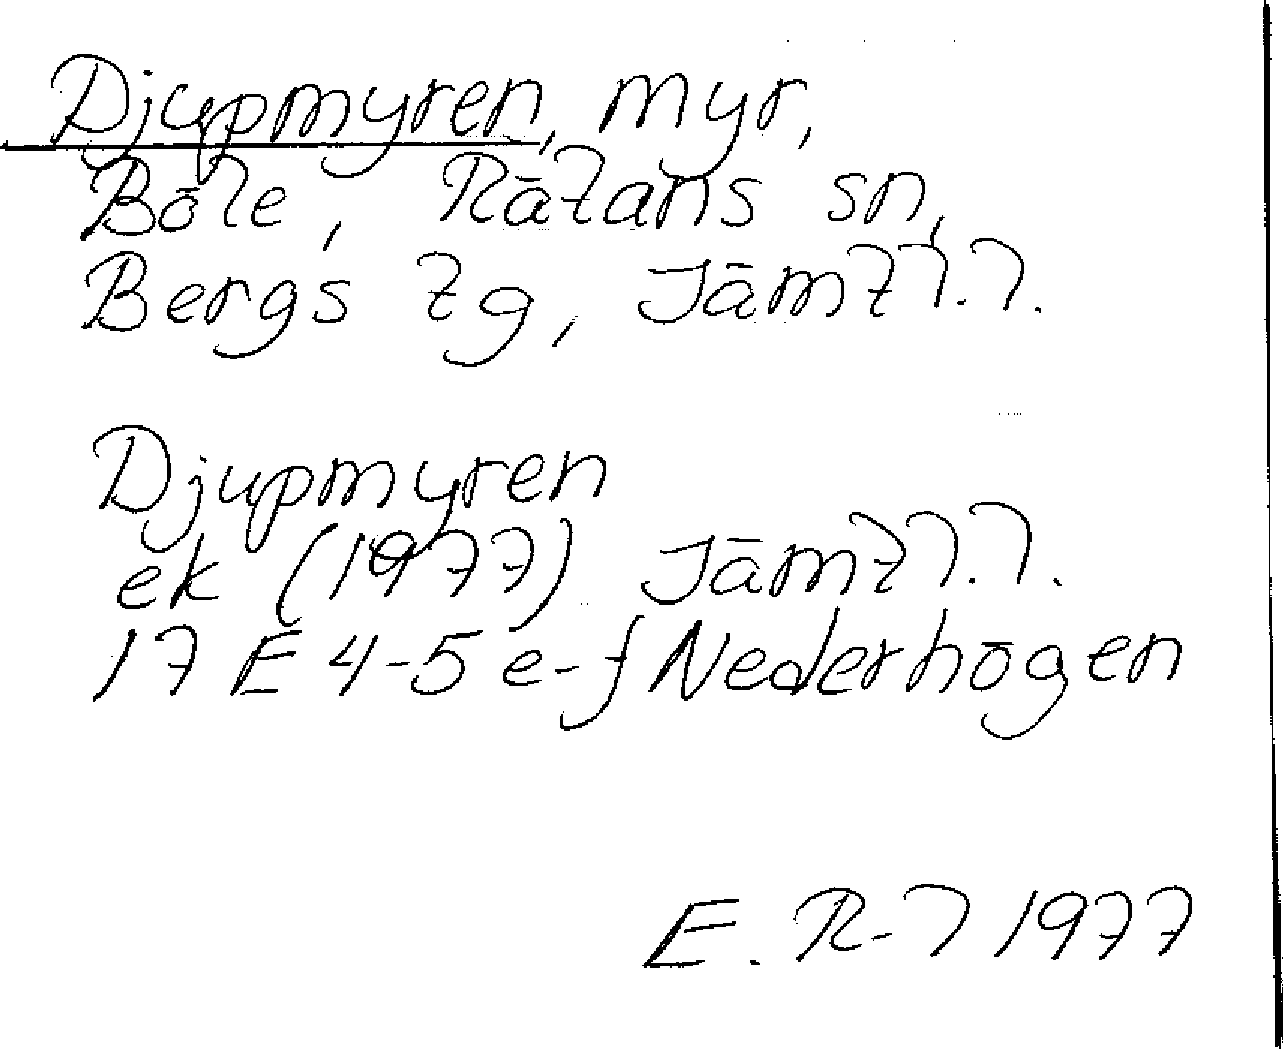 Djupmyren, myr,
Böle, Rätans sn,
Bergs tg, Jämtl.l.
Djupmyren
ek (1977) Jämtl.l.
17 E 4-5 e-f Nederhögen
E. R-l 1977